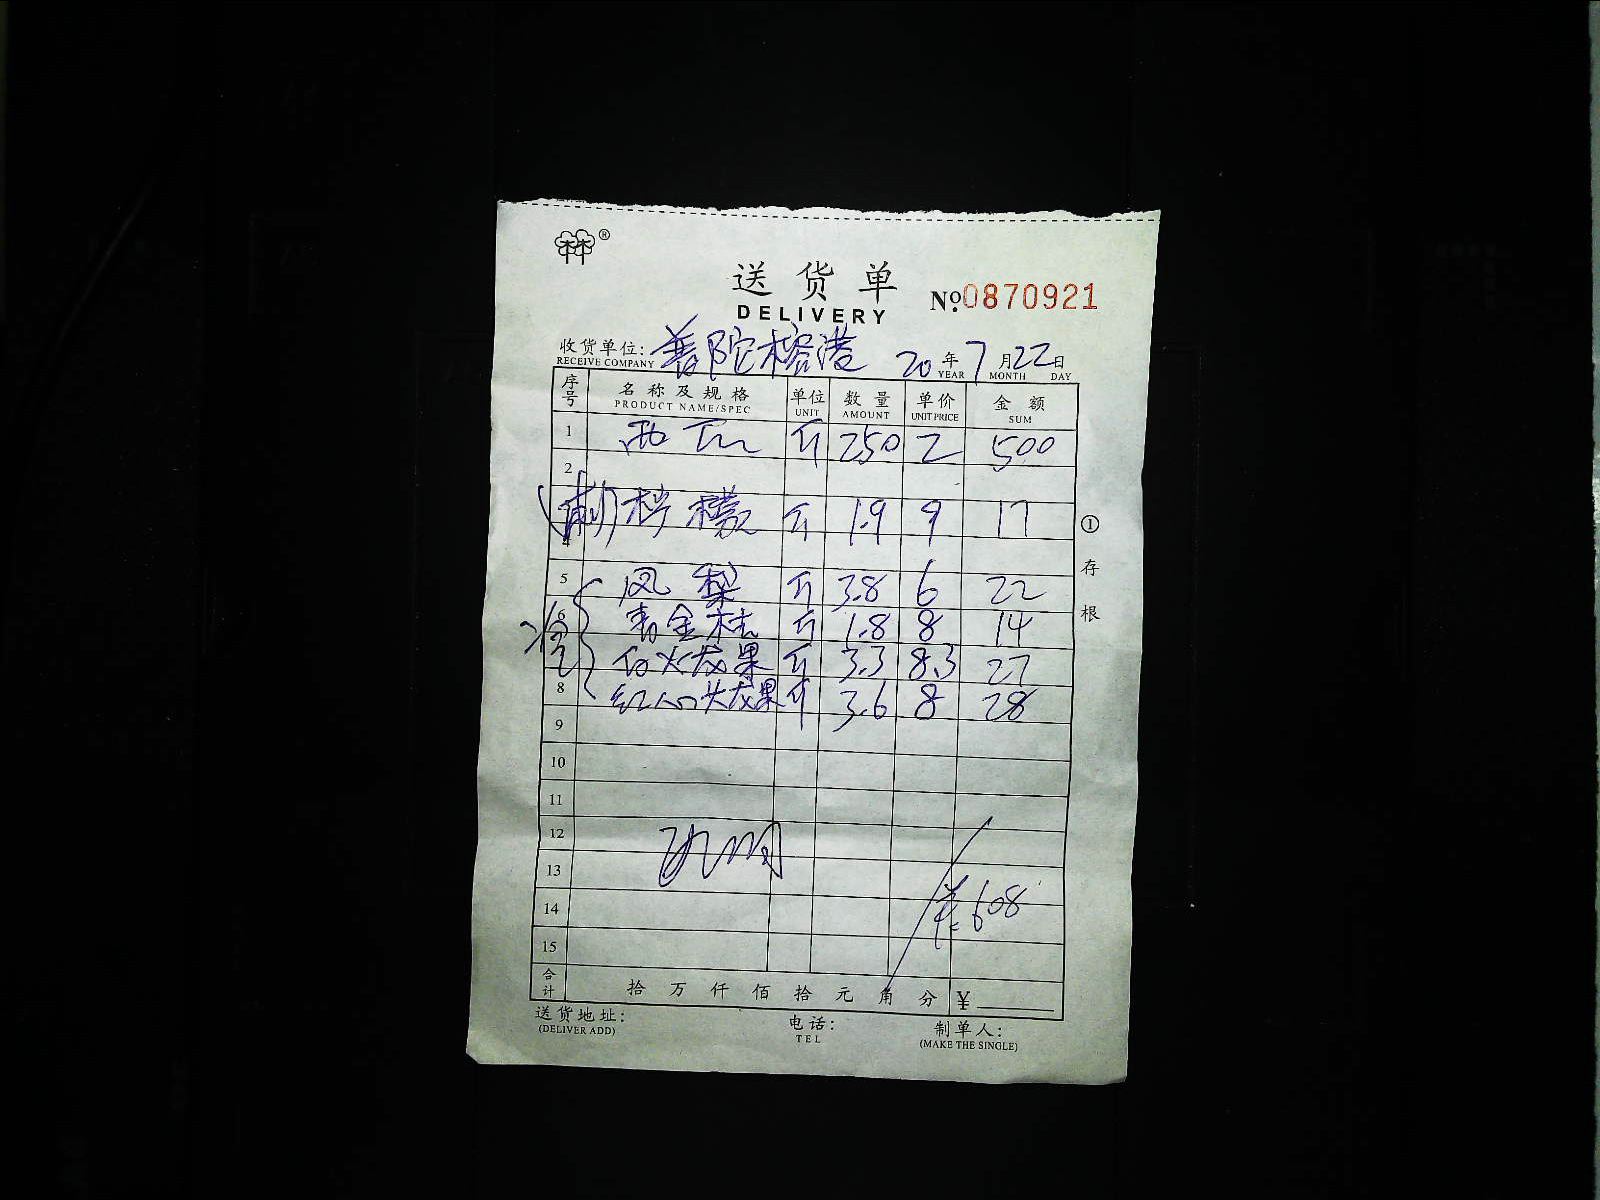 林®
送货单
DELIVERY
№.0870921
收货单位: 普陀榕港 20年7月22日
RECEIVE COMPANY YEAR MONTH DAY
序号 名称及规格 单位 数量 单价 金额
PRODUCT NAME/SPEC UNIT AMOUNT UNIT PRICE SUM
1 西瓜 斤 250 2 500
2
柠檬 斤 1.9 9 17
4
5 凤梨 斤 3.8 6 22
6 青金桔 斤 1.8 8 14
7 白火龙果 斤 3.3 8.3 27
8 红心火龙果 斤 3.6 8 28
9
10
11
12
13
14 608
15
合计 拾万仟佰拾元角分 ¥
送货地址: 电话: 制单人:
(DELIVER ADD) TEL (MAKE THE SINGLE)
①存根